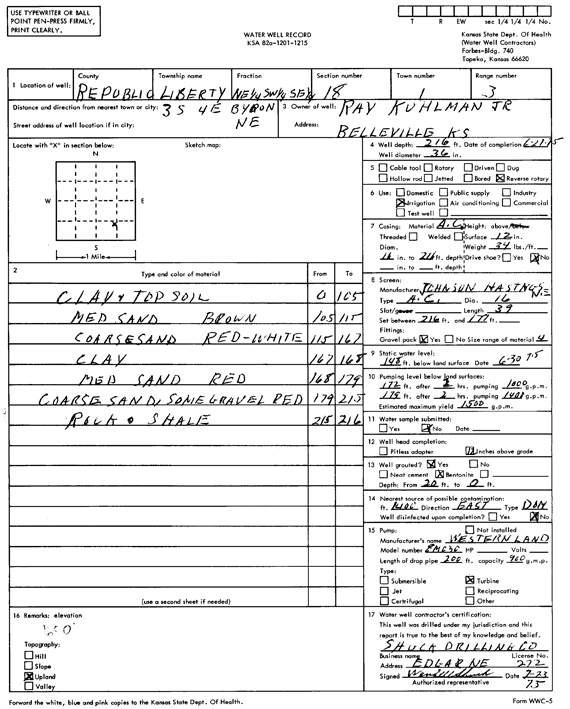 USE TYPEWRITER OR BALL
POINT PEN-PRESS FIRMLY,
PRINT CLEARLY.
WATER WELL RECORD
KSA 82a-1201-1215
T R EW sec 1/4 1/4 1/4 No.
Kansas State Dept. Of Health
(Water Well Contractors)
Forbes-Bldg. 740
Topeka, Kansas 66620
1 Location of well: County Township name Fraction Section number Town number Range number
REPUBLIC LIBERTY NE¼ SW¼ SE¼ 18 1 3
Distance and direction from nearest town or city: 3 S 4 E BYRON NE
Street address of well location if in city:
3 Owner of well: RAY KUHLMAN JR
Address: BELLEVILLE KS
Locate with "X" in section below: Sketch map:
N
W E
X
S
1 Mile
4 Well depth: 216 ft. Date of completion
Well diameter 36 in.
5 Cable tool Rotary Driven Dug
Hollow rod Jetted Bored X Reverse rotary
6 Use: Domestic Public supply Industry
X Irrigation Air conditioning Commercial
Test well
7 Casing: Material A.C. Height: above/below
Threaded Welded Surface 12 in.
Diam. Weight 34 lbs./ft.
16 in. to 216 ft. depth Drive shoe? Yes X No
in. to ft. depth
8 Screen:
Manufacturer JOHNSON HASTNGS
Type A.C. Dia. 16
Slot/gauze Length 39
Set between 216 ft. and 177 ft.
Fittings:
Gravel pack X Yes No Size range of material
9 Static water level:
148 ft. below land surface Date 6-30 75
10 Pumping level below land surfaces:
172 ft. after 2 hrs. pumping 1000 g.p.m.
179 ft. after 2 hrs. pumping 1400 g.p.m.
Estimated maximum yield 1500 g.p.m.
11 Water sample submitted:
Yes X No Date
12 Well head completion:
Pitless adapter 12 Inches above grade
13 Well grouted? X Yes No
Neat cement X Bentonite
Depth: From 20 ft. to 0 ft.
14 Nearest source of possible contamination:
ft. Direction EAST Type DOM
Well disinfected upon completion? Yes X No
15 Pump: Not installed
Manufacturer's name WESTERN LAND
Model number HP Volts
Length of drop pipe 200 ft. capacity 900 g.m.p.
Type:
Submersible X Turbine
Jet Reciprocating
Certrifugal Other
2 Type and color of material From To
CLAY & TOP SOIL 0 105
MED SAND BROWN 105 115
COARSE SAND RED-WHITE 115 167
CLAY 167 168
MED SAND RED 168 179
COARSE SAND, SOME GRAVEL RED 179 215
ROCK & SHALE 215 216
(use a second sheet if needed)
16 Remarks: elevation
Topography:
Hill
Slope
X Upland
Valley
17 Water well contractor's certification:
This well was drilled under my jurisdiction and this
report is true to the best of my knowledge and belief.
SHUCK DRILLING CO
Business name License No.
Address EDGAR NE 272
Signed Date 7-23
Authorized representative 75
Forward the white, blue and pink copies to the Kansas State Dept. Of Health.
Form WWC-5